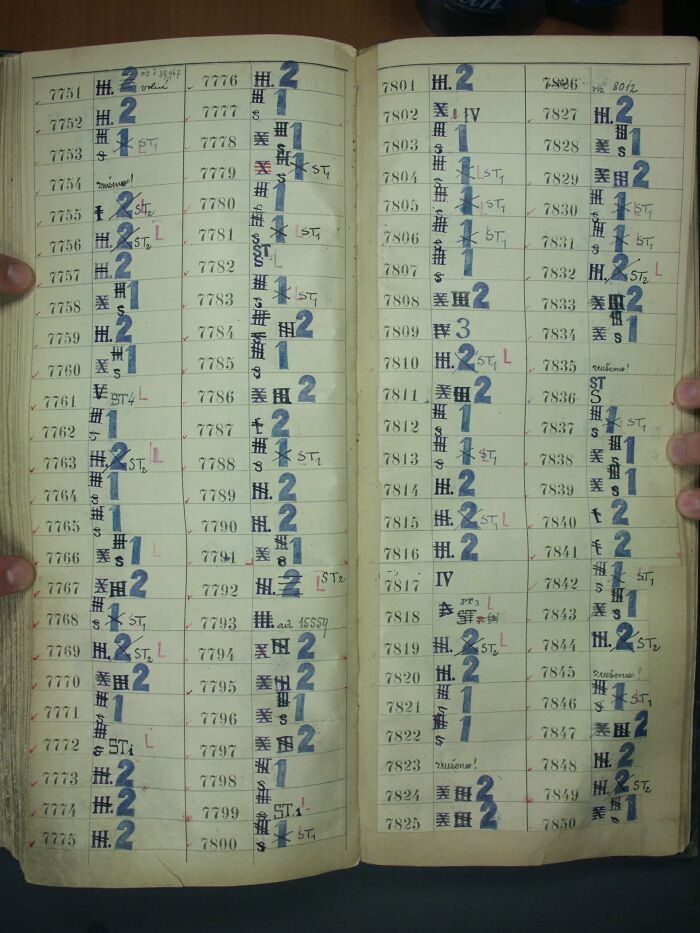 7751 III. 2
7752 III. 2
7753 III S 1 ST1 L
7754 zrušeno!
7755 I 2 ST2 L
7756 III. 2 ST2 L
7757 III. 2
7758 X III S 1
7759 III. 2
7760 X III S 1
7761 V ST4 L
7762 III S 1
7763 III. 2 ST2 L
7764 III S 1
7765 III S 1
7766 X III S 1 L
7767 X III 2
7768 III S 1 ST1
7769 III. 2 ST2 L
7770 X III 2
7771 III S 1
7772 III S ST1 L
7773 III. 2
7774 III. 2
7775 III. 2
7776 III. 2
7777 III S 1
7778 X III S 1
7779 X III S 1 ST1
7780 III S 1
7781 III S 1 L ST1
7782 ST S L
7783 III S 1 L ST1
7784 III S III 2
7785 III S 1
7786 X III 2
7787 I 2
7788 III S 1 ST1
7789 III. 2
7790 III. 2
7791 X III S 1
7792 III. 2 L ST2
7793 III. až 15559
7794 X III 2
7795 X III 2
7796 X III S 1
7797 X III 2
7798 III S 1
7799 III S ST.1 L
7800 III S 1 ST1
7801 III. 2
7802 X IV
7803 III S 1
7804 III S 1 L ST1
7805 III S 1 L ST1
7806 III S 1 ST1
7807 III S 1
7808 X III 2
7809 IV 3
7810 III. 2 ST1 L
7811 X III 2
7812 III S 1
7813 III S 1 ST1
7814 III. 2
7815 III. 2 ST1 L
7816 III. 2
7817 IV
7818 PT3 L ST
7819 III. 2 ST2 L
7820 III. 2
7821 III S 1
7822 III S 1
7823 zrušeno!
7824 X III 2
7825 X III 2
7826 viz 8012
7827 III. 2
7828 X III S 1
7829 X III 2
7830 III S 1 ST1
7831 III S 1 ST1
7832 III. 2 ST2 L
7833 X III 2
7834 X III S 1
7835 zrušeno!
7836 ST S
7837 III S 1 ST1
7838 X III S 1
7839 X III S 1
7840 I 2
7841 I 2
7842 III S 1 ST1
7843 X III S 1
7844 III. 2 ST2
7845 zrušeno!
7846 III S 1 ST1
7847 X III 2
7848 III. 2
7849 III. 2 ST2
7850 X III S 1